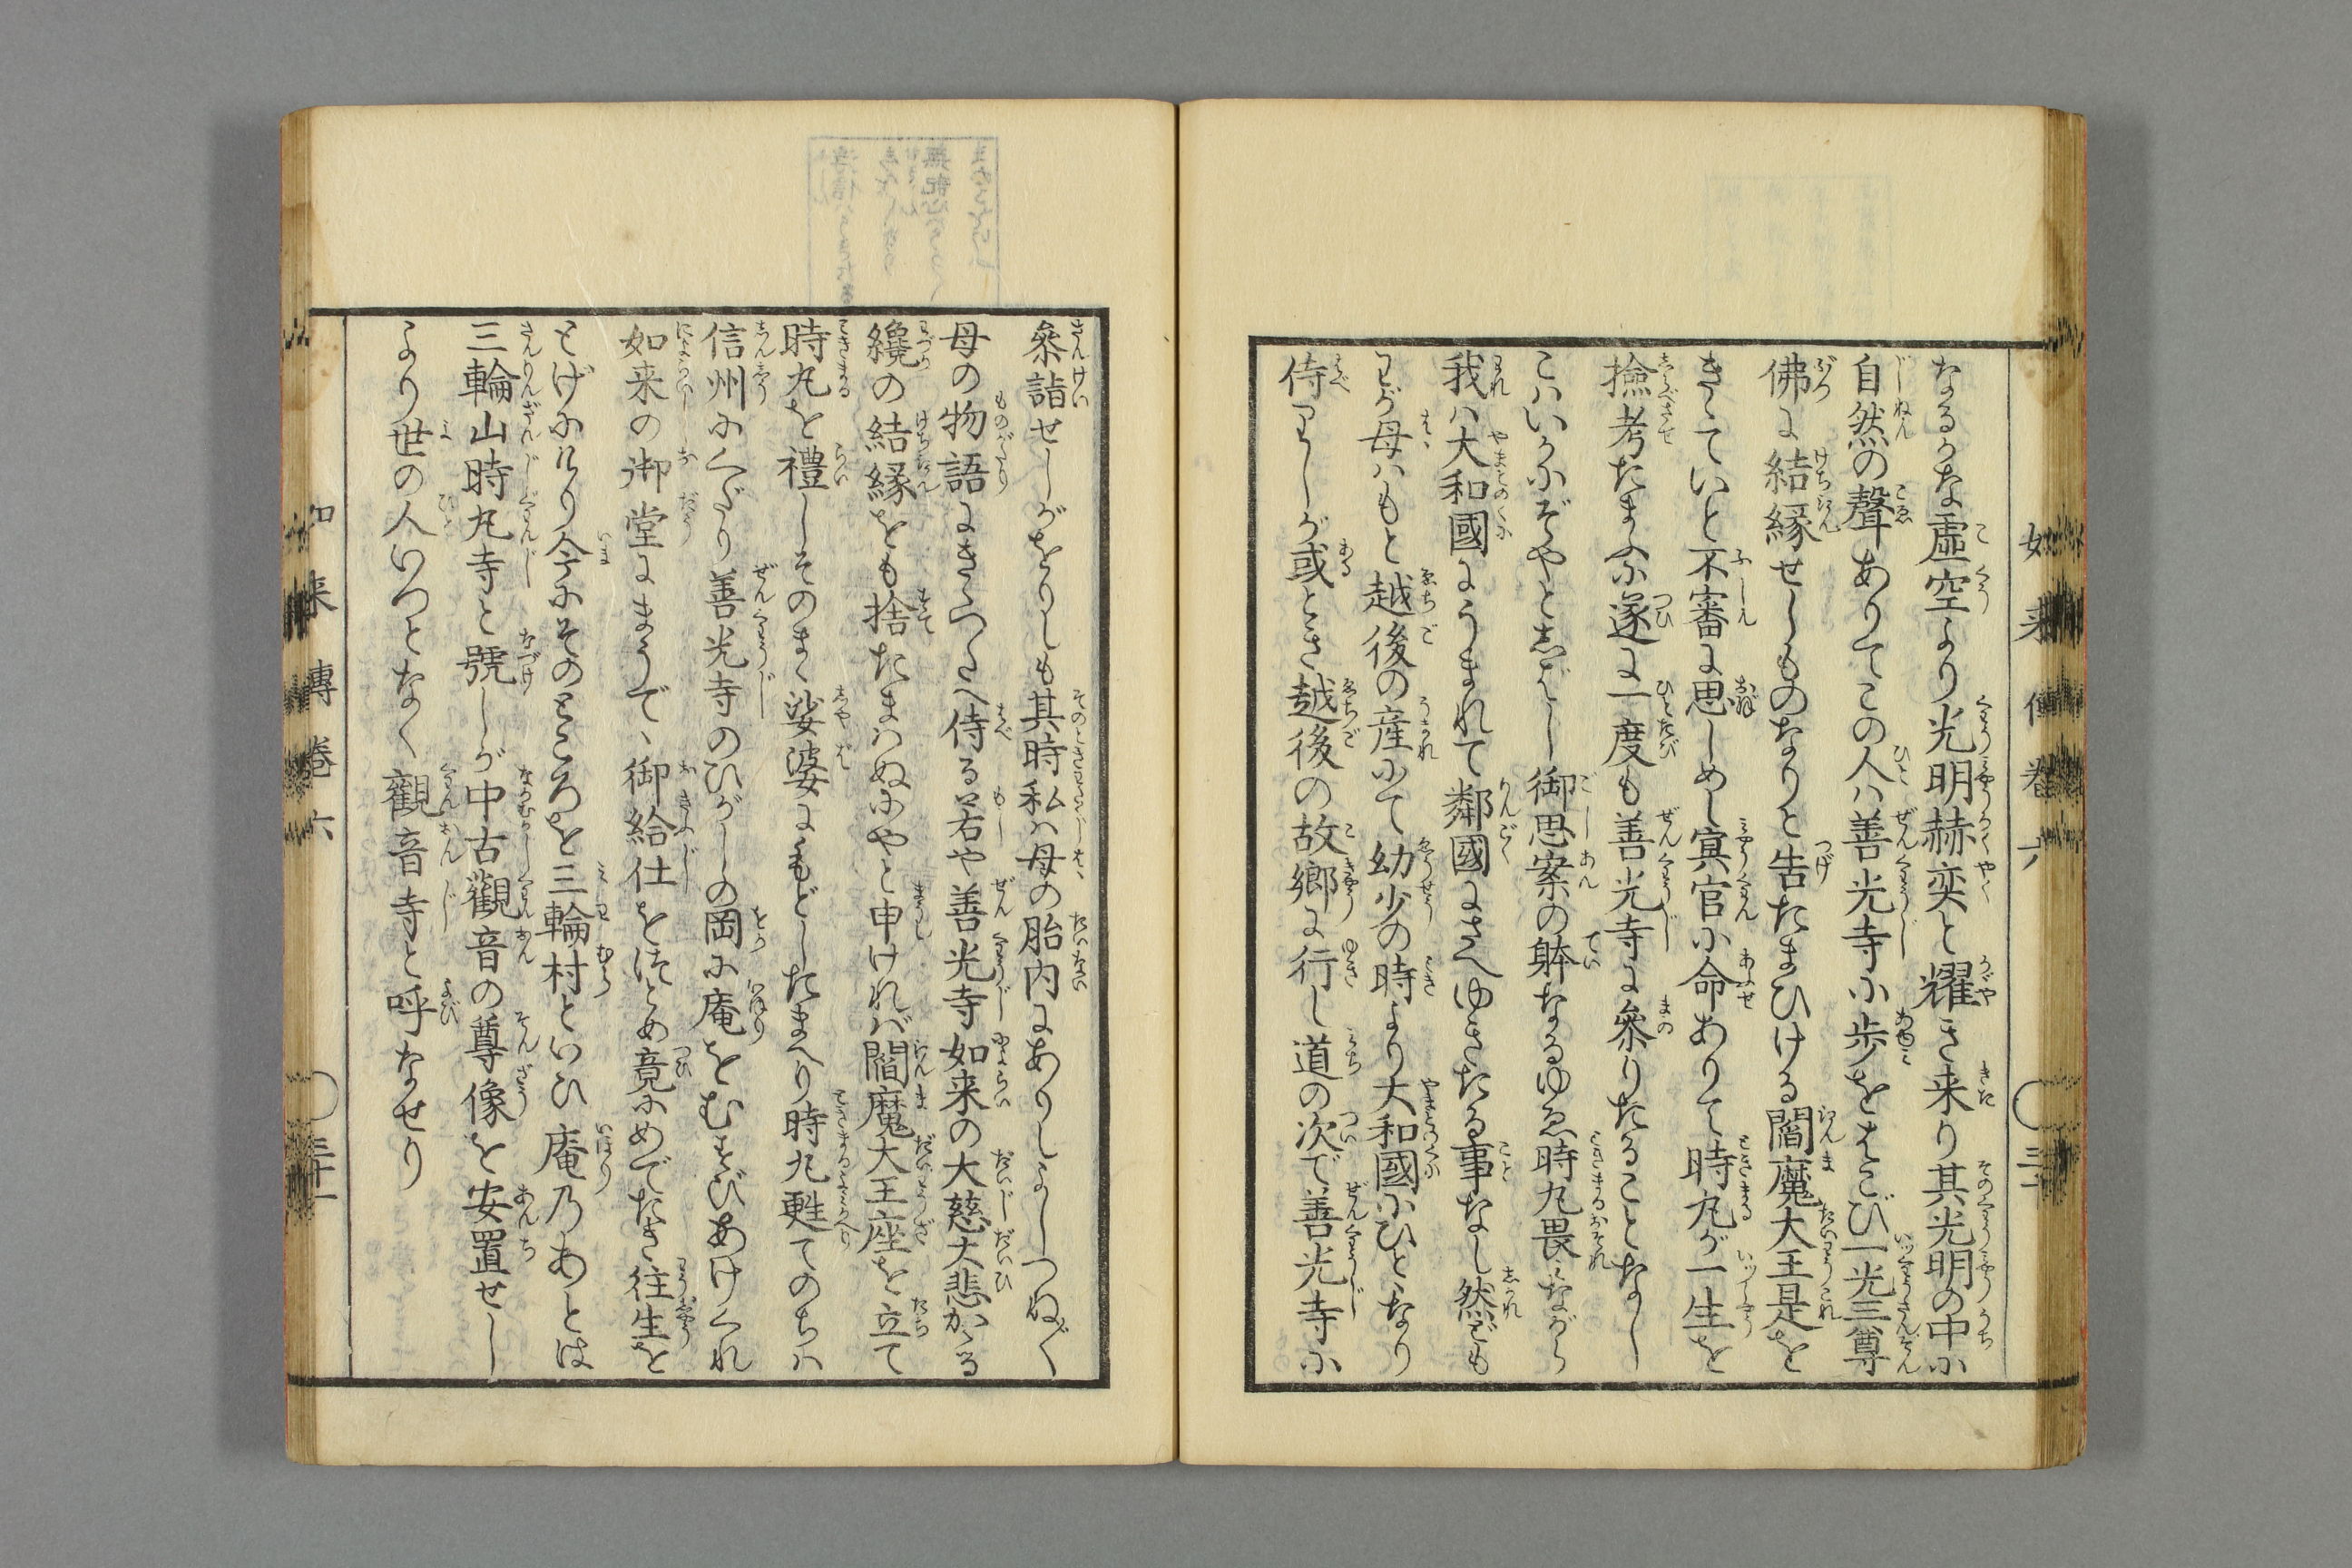 なるかな虚空より光明赫奕と耀き来り其光明の中に
自然の聲ありてこの人ハ善光寺に歩をはこび一光三尊
佛に結縁せしものなりと告たまひける閻魔大王是を
きゝていと不審に思しめし冥官に命ありて時丸が一生を
撿考たまふに遂に一度も善光寺に參りたることなし
こハいかにぞやとしばし御思案の躰なるゆゑ時丸畏ミながら
我ハ大和國にうまれて鄰國にさへゆきたる事なし然ども
わが母ハもと越後の産にて幼少の時より大和國にひとゝなり
侍りしが或とき越後の故郷に行し道の次で善光寺に
參詣せしがをりしも其時私ハ母の胎内にありしよしつね〴〵
母の物語にきゝつたへ侍る若や善光寺如来の大慈大悲かゝる
纔の結縁をも捨たまハぬにやと申けれバ閻魔大王座を立て
時丸を禮しそのまゝ娑婆にもどしたまへり時丸甦てのちハ
信州にくだり善光寺のひがしの岡に庵をむすびあけくれ
如来の御堂にまうで、御給仕をつとめ竟にめでたき往生を
とげにけり今にそのところを三輪村といひ庵乃あとは
三輪山時丸寺と號しが中古觀音の尊像を安置せし
より世の人いつとなく觀音寺と呼なせり
如来傳卷六